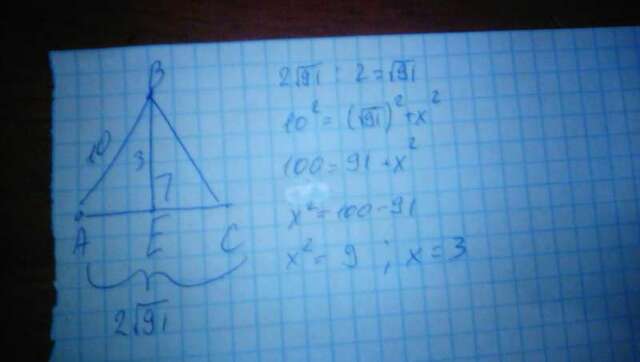 B
10
3
A E C
2√91
2√91 : 2 = √91
10² = (√91)² + x²
100 = 91 + x²
x² = 100 - 91
x² = 9 ; x = 3